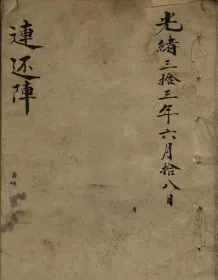 光緒三拾三年六月拾八日
連还陣